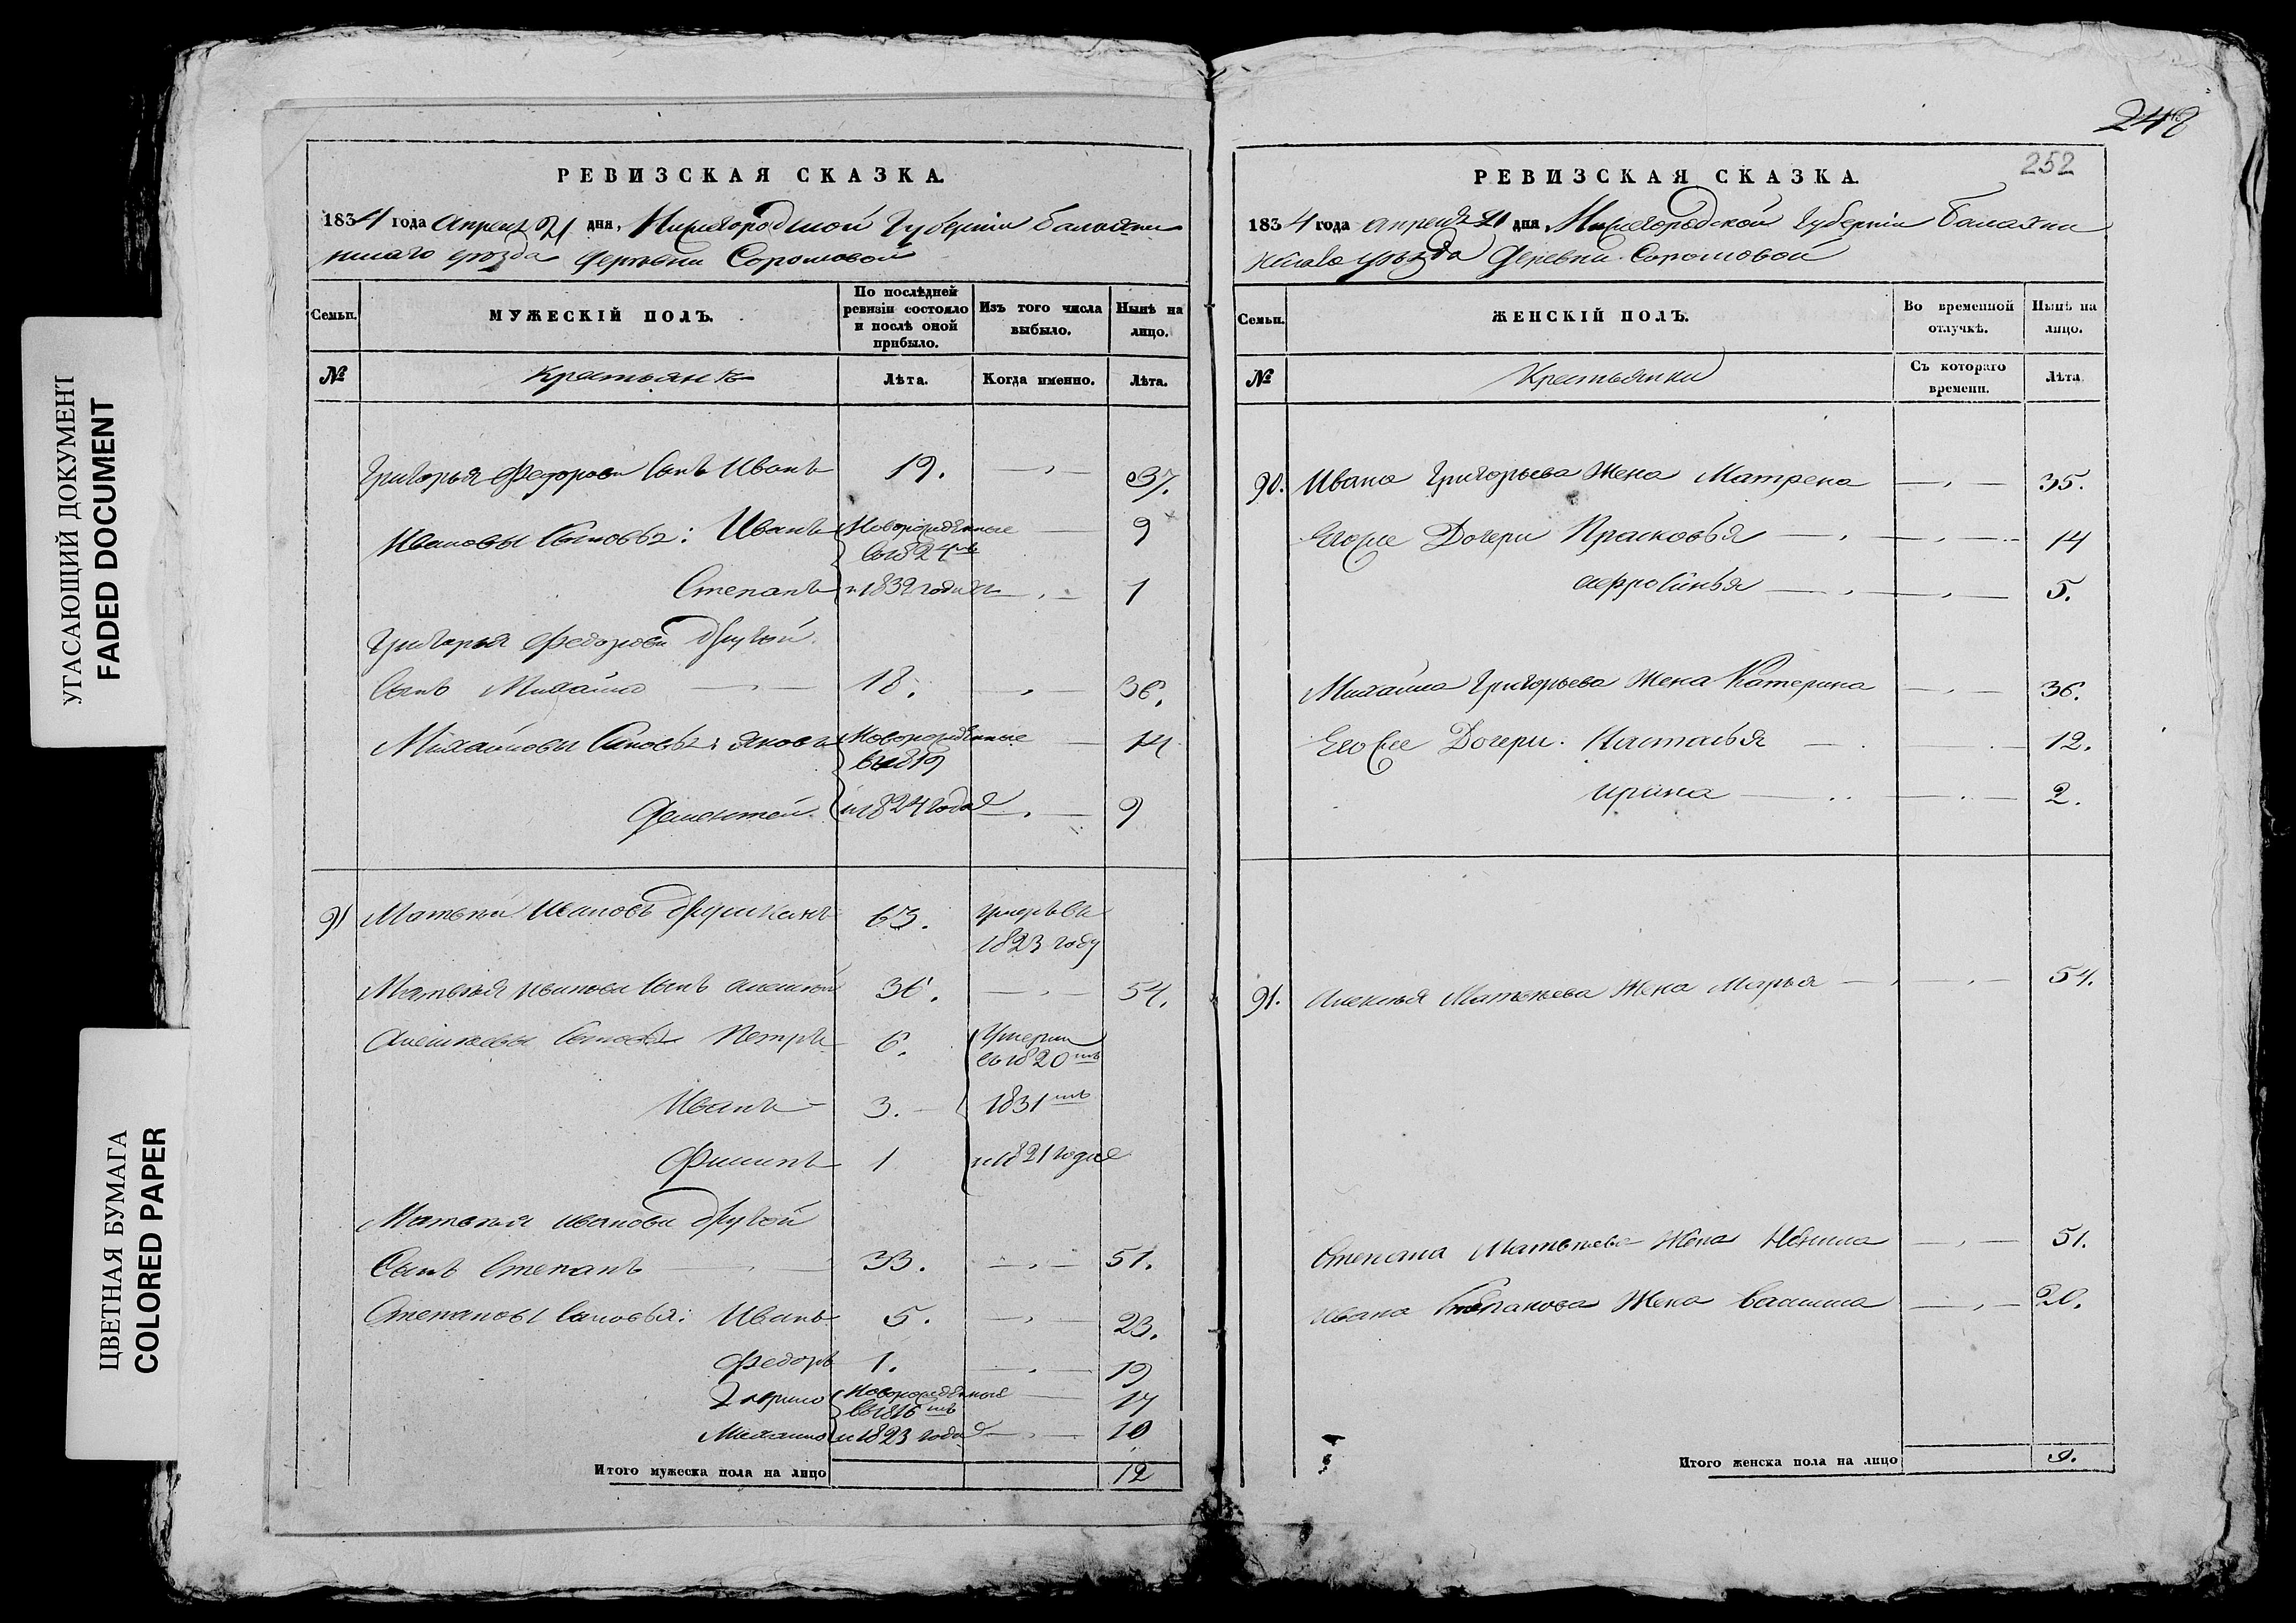 УГАСАЮЩИЙ ДОКУМЕНТ
FADED DOCUMENT
ЦВЕТНАЯ БУМАГА
COLORED PAPER
РЕВИЗСКАЯ СКАЗКА.
1834 года апреля 21 дня, Нижегородской Губерніи Балахни
нскаго уѣзда Деревни Сормовой
Семьи. МУЖЕСКІЙ ПОЛЪ. По послѣдней ревизіи состояло и послѣ оной прибыло. Изъ того числа выбыло. Нынѣ на лицо.
№ Крестьянъ Лѣта. Когда именно. Лѣта.
Григорья Федорова сынъ Иванъ 19. 37.
Ивановы сыновья: Иванъ Новорожденные въ 1824мъ 9
Степанъ и 1832 годахъ 1
Григорья Федорова другой
сынъ Михайла 18. 36.
Михайловы сыновья: Яковъ Новорожденные въ 1819 14
Дементей и 1824 года 9
91 Матвей Ивановъ 63. умре въ
1823 году
Матвея Иванова сынъ Алексей 36. 54.
Алексеевы сыновья Петръ 6. Умерли въ 1820мъ
Иванъ 3. 1831мъ
Филипъ 1 и 1821 года
Матвея Иванова другой
Сынъ Степанъ 33. 51.
Степановы сыновья: Иванъ 5. 23.
Федоръ 1. 19
Гаврило Новорожденные въ 1816мъ 17
Михаило и 1823 года 10
Итого мужеска пола на лицо 12
248
252
РЕВИЗСКАЯ СКАЗКА.
1834 года апреля 21 дня Нижегородской Губерніи Балахни
нскаго уѣзда Деревни Сормовой
Семьи. ЖЕНСКІЙ ПОЛЪ. Во временной отлучкѣ. Нынѣ на лицо.
№ Крестьянки Съ котораго времени. Лѣта
90. Ивана Григорьева Жена Матрена 35.
Его же Дочери Прасковья 14
афросинья 5.
Михайла Григорьева Жена Катерина 36.
Его же Дочери. Насталья 12.
ирина 2.
91. Алексея Матвеева Жена Марья 54.
Степана Матвеева Жена 51.
Ивана Степанова Жена Василиса 20.
Итого женска пола на лицо 9.